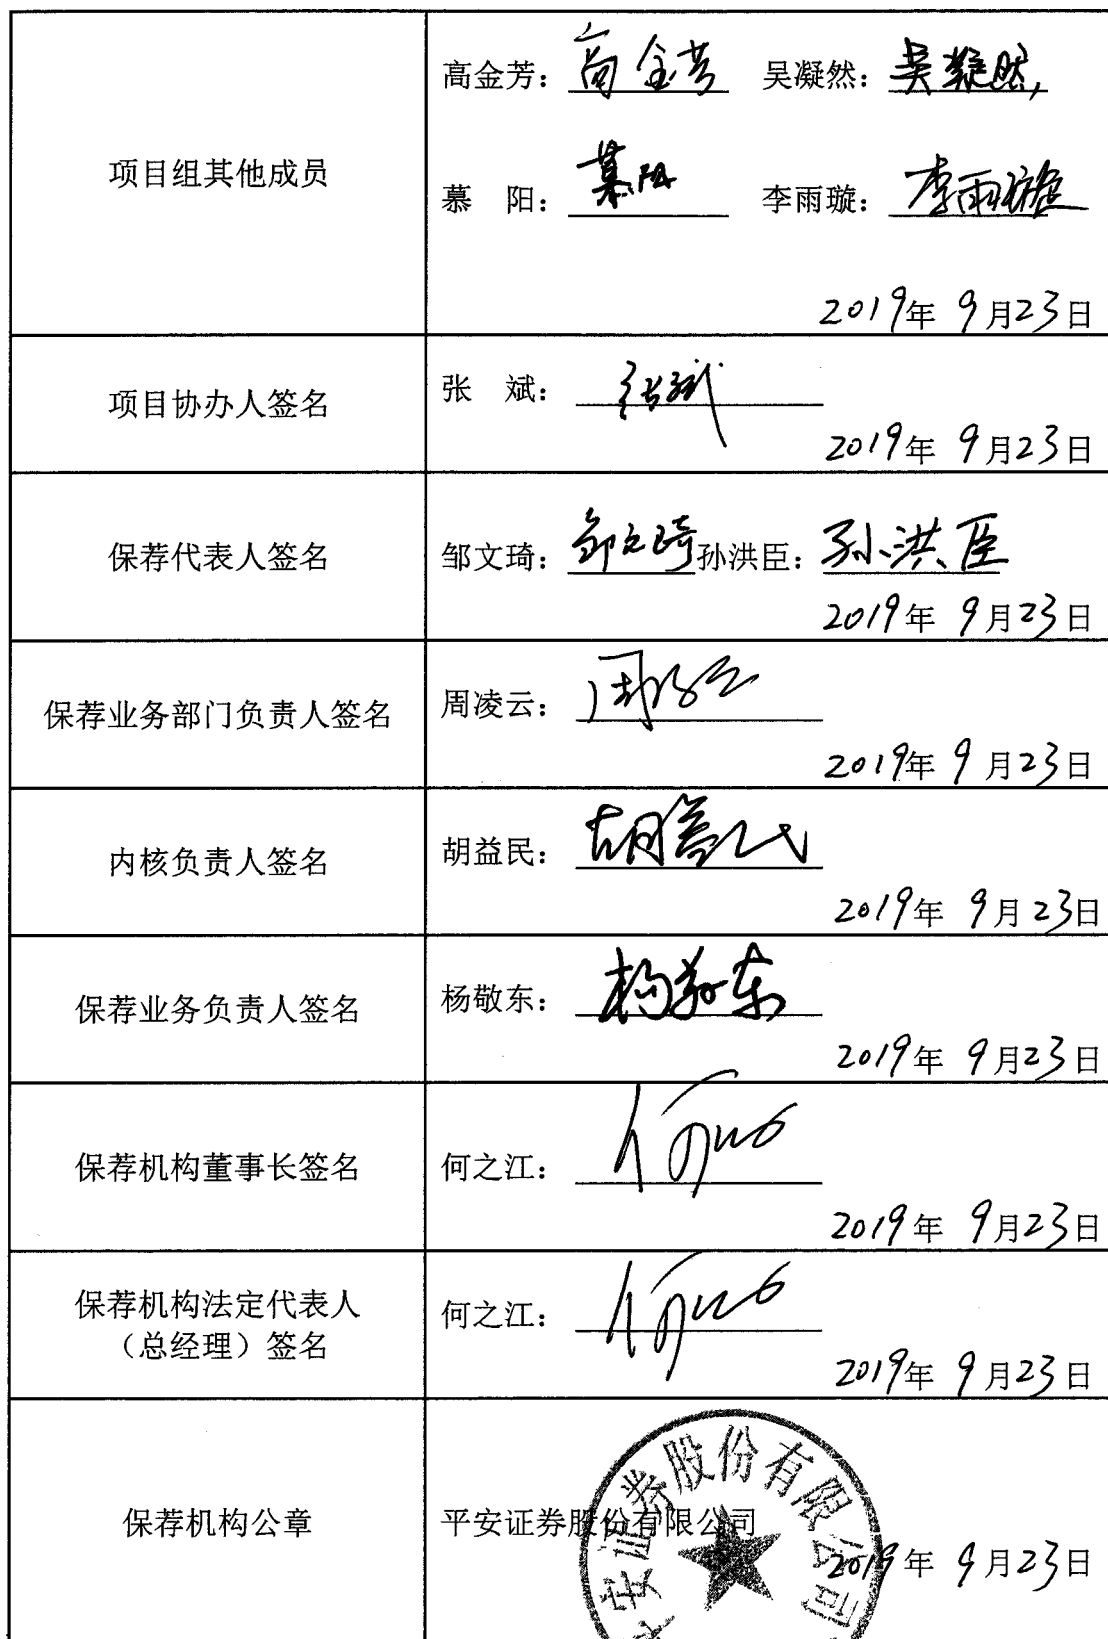 项目组其他成员
高金芳：高金芳 吴凝然：吴凝然
慕 阳：慕阳 李雨璇：李雨璇
2019年 9月23日
项目协办人签名
张 斌：张斌
2019年 9月23日
保荐代表人签名
邹文琦：邹文琦 孙洪臣：孙洪臣
2019年 9月23日
保荐业务部门负责人签名
周凌云：周凌云
2019年 9月23日
内核负责人签名
胡益民：胡益民
2019年 9月23日
保荐业务负责人签名
杨敬东：杨敬东
2019年 9月23日
保荐机构董事长签名
何之江：何之江
2019年 9月23日
保荐机构法定代表人
（总经理）签名
何之江：何之江
2019年 9月23日
保荐机构公章
平安证券股份有限公司
平安证券股份有限公司
2019年 9月23日